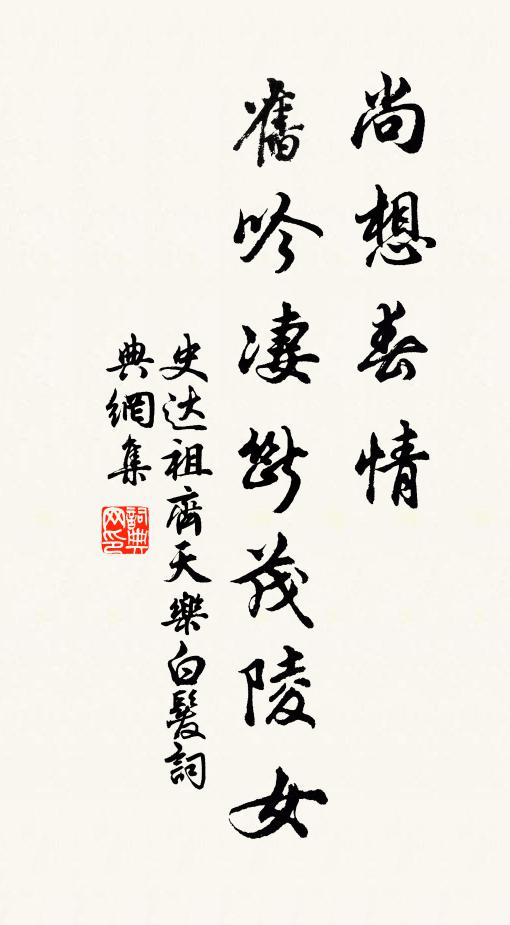 尚想春情
舊吟淒斷茂陵女
史达祖齊天樂白髮詞
典網集
詞典网印